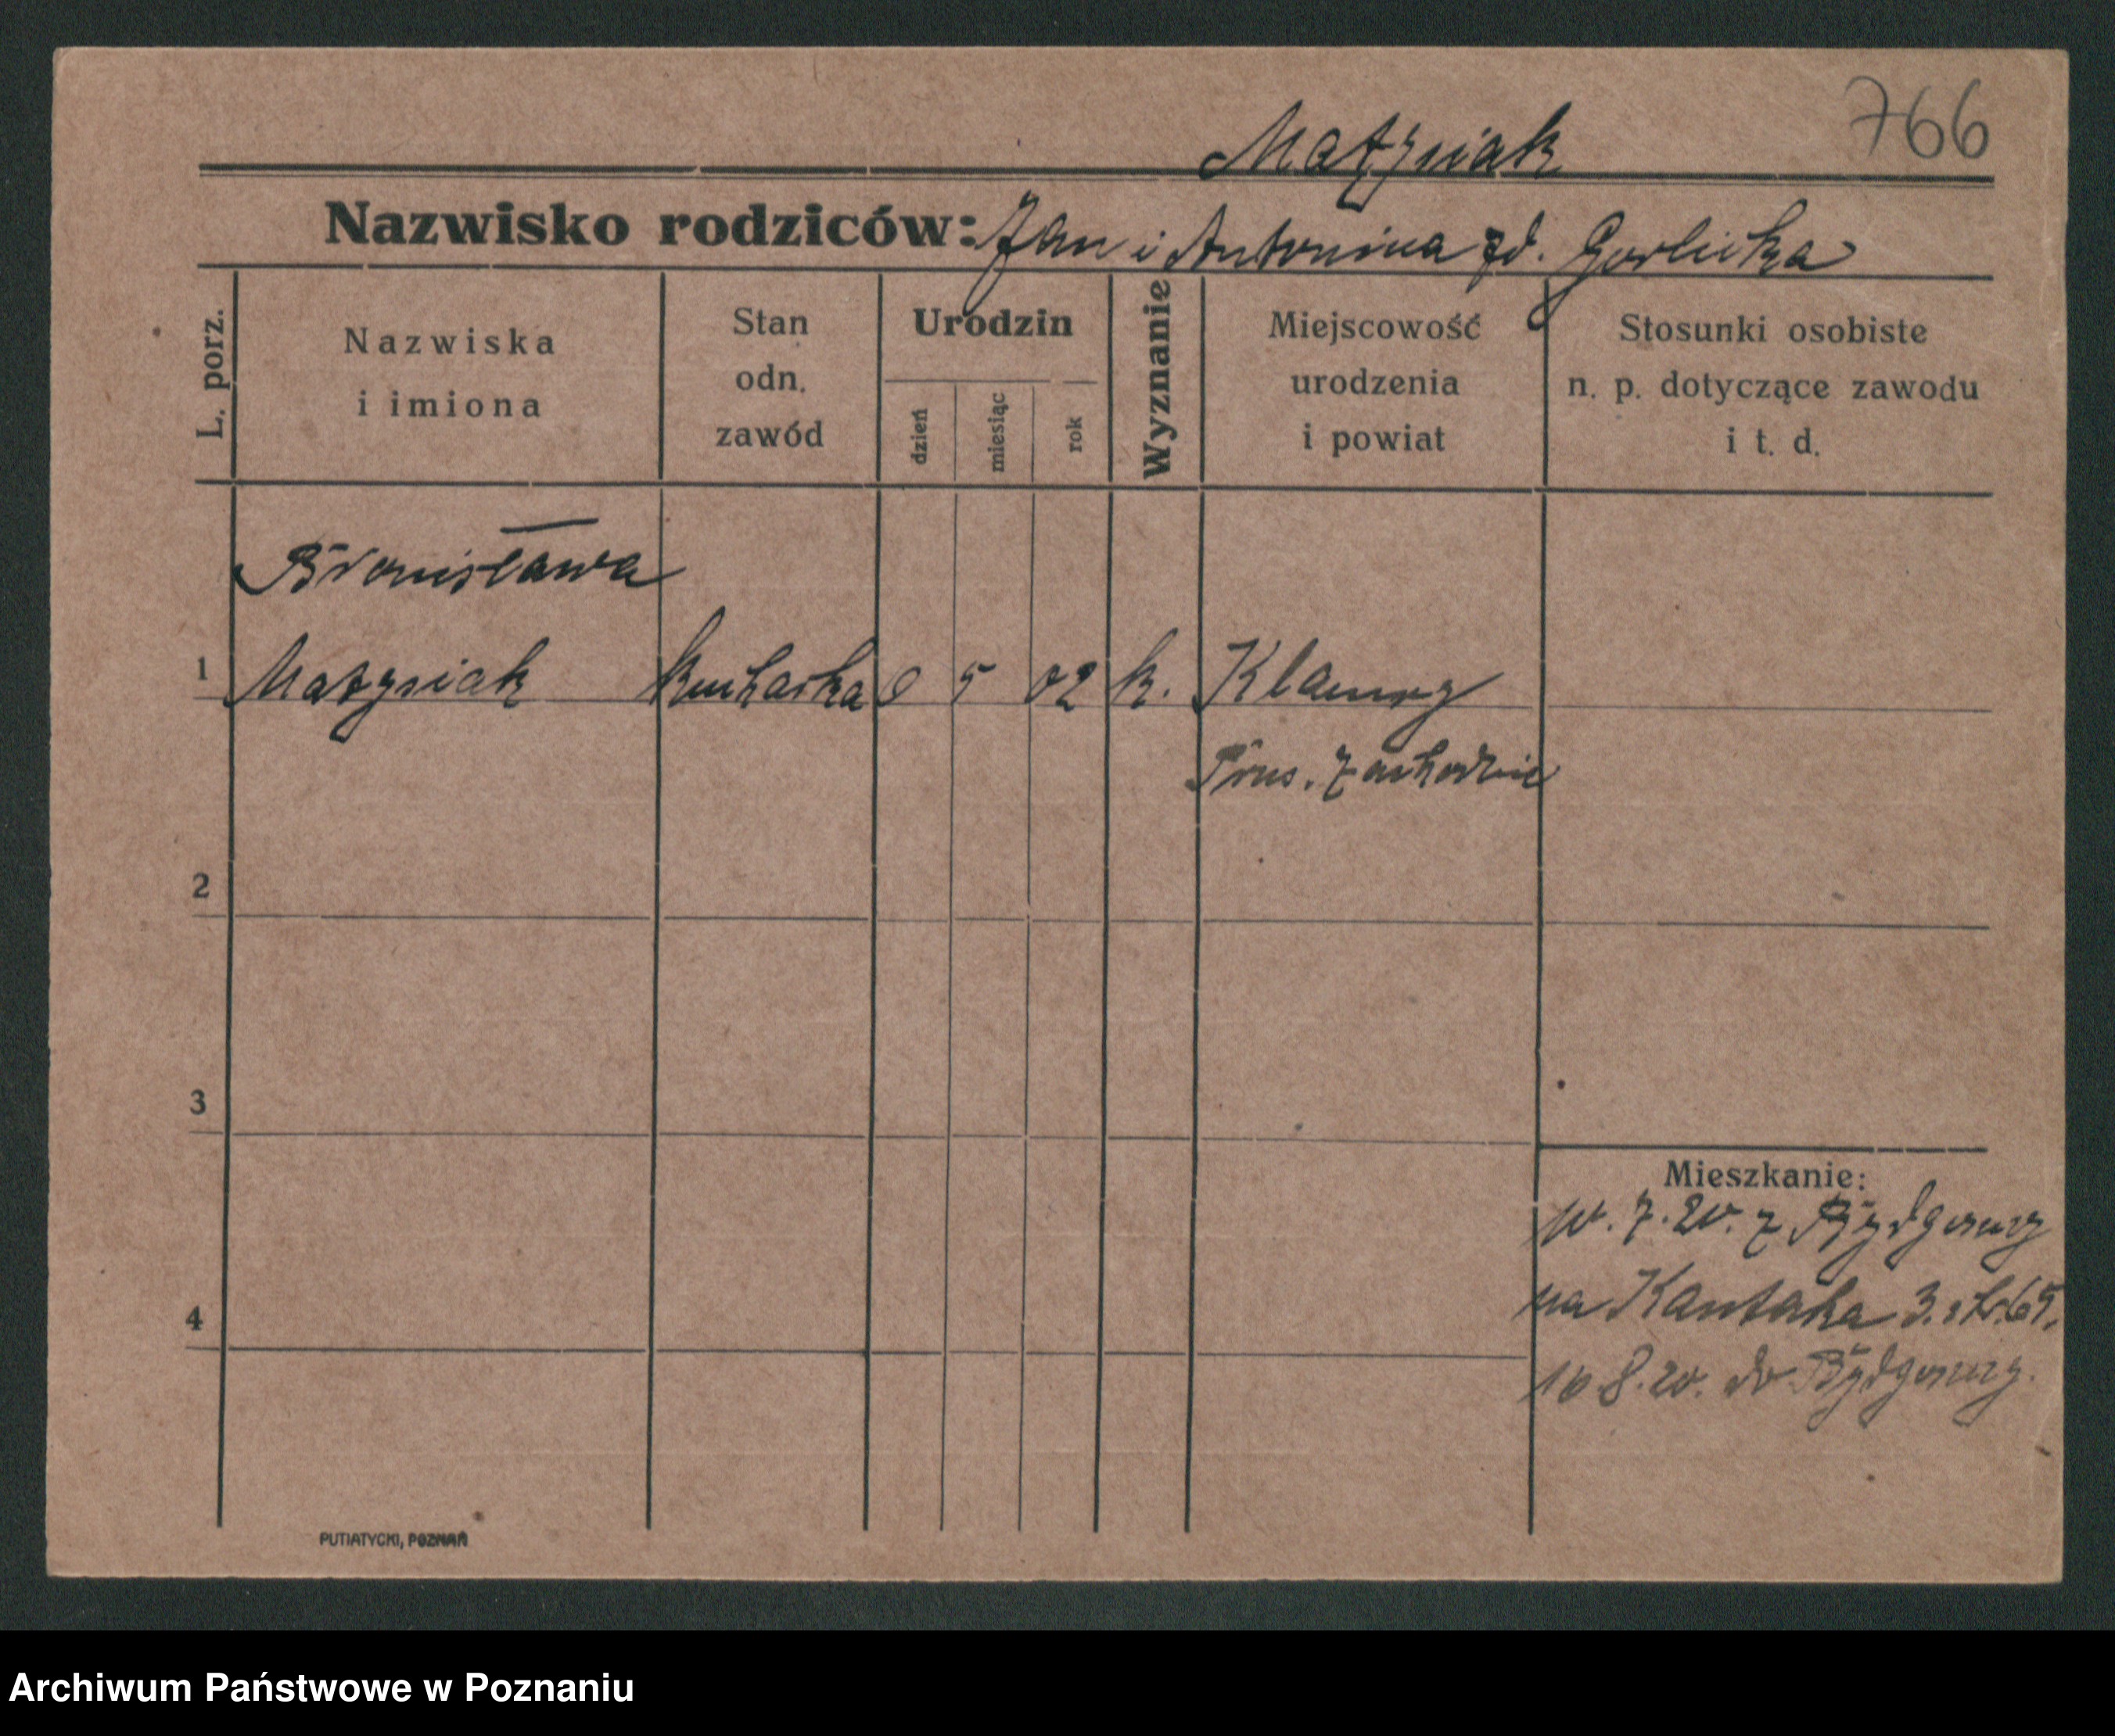 766
Matysiak
Nazwisko rodziców: Jan i Antonina zd. Gorlicka
L. porz.
Nazwiska
i imiona
Stan
odn.
zawód
Urodzin
dzień
miesiąc
rok
Wyznanie
Miejscowość
urodzenia
i powiat
Stosunki osobiste
n. p. dotyczące zawodu
i t. d.
Bronisława
1 Matysiak kucharka 5 02 k.
Prus. Zachodnie
2
3
4
Mieszkanie:
10.7.20. z Bydgoszczy
na Kantaka 3. str. 65.
10.8.20. do Bydgoszczy.
PUTIATYCKI, POZNAŃ
Archiwum Państwowe w Poznaniu